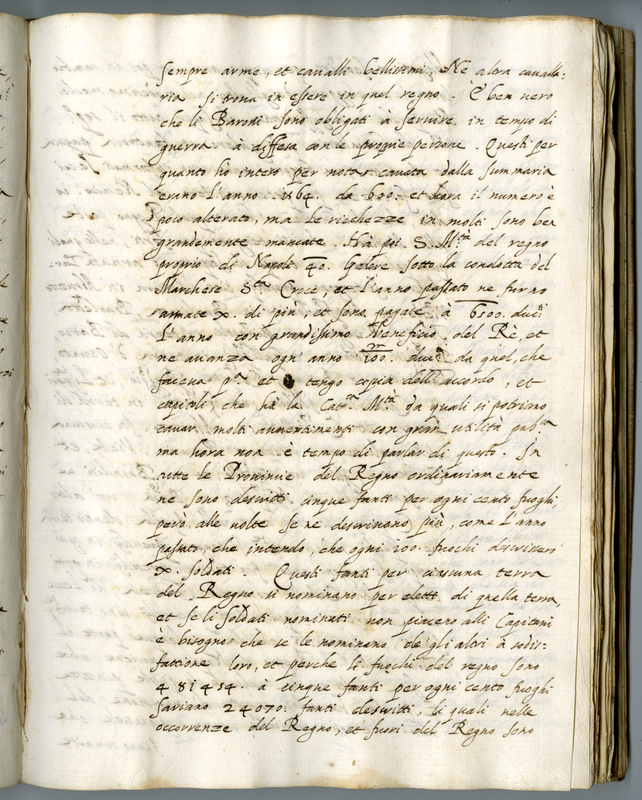 sempre arme, et cavalli bellissimi, Nè altra cavalla:
ria si trova in essere in quel regno. È ben vero
che li Baroni sono obligati à servire in tempo di
guerra à diffesa con le proprie persone. Questi per
quanto ho inteso per nota cavata dalla summaria
erano l'anno 1564. da 600. et hora il numero è
poco alterato, ma le ricchezze in molti sono ben
grandemente mancate. Hà poi S. M.tà del regno
proprio di Napoli 40. Galere sotto la condotta del
Marchese S.ta Croce, et l'anno passato ne furno
armate X. di più, et sono pagate à 6500. duc.ti
l'anno con grandissimo beneficio del Rè, et
ne avanza ogn' anno 100. duc.ti da quel, che
faceva p.a et tengo copia dell' accordo, et
capitoli, che hà la Cat.ca M.tà da quali si potriano
cavar molti avvertimenti con gran utilità pub.ca
ma hora non è tempo di parlar di questo. In
tutte le Provincie del Regno ordinariamente
ne sono descritti cinque fanti per ogni cento fuoghi,
però alle volte se ne descrivono più, come l'anno
passato, che intendo, che ogni 100. fuochi descrissero
X. soldati. Questi fanti per ciascuna terra
del Regno si nominano per eletti di quella terra,
et se li soldati nominati non piacero alli Capitani
è bisogno che se le nominano de gli altri à sodis-
fattione loro, et perche li fuochi del regno sono
481454. à cinque fanti per ogni cento fuoghi
sariano 24070. fanti descritti, li quali nelle
occorrenze del Regno, et fuori del Regno sono